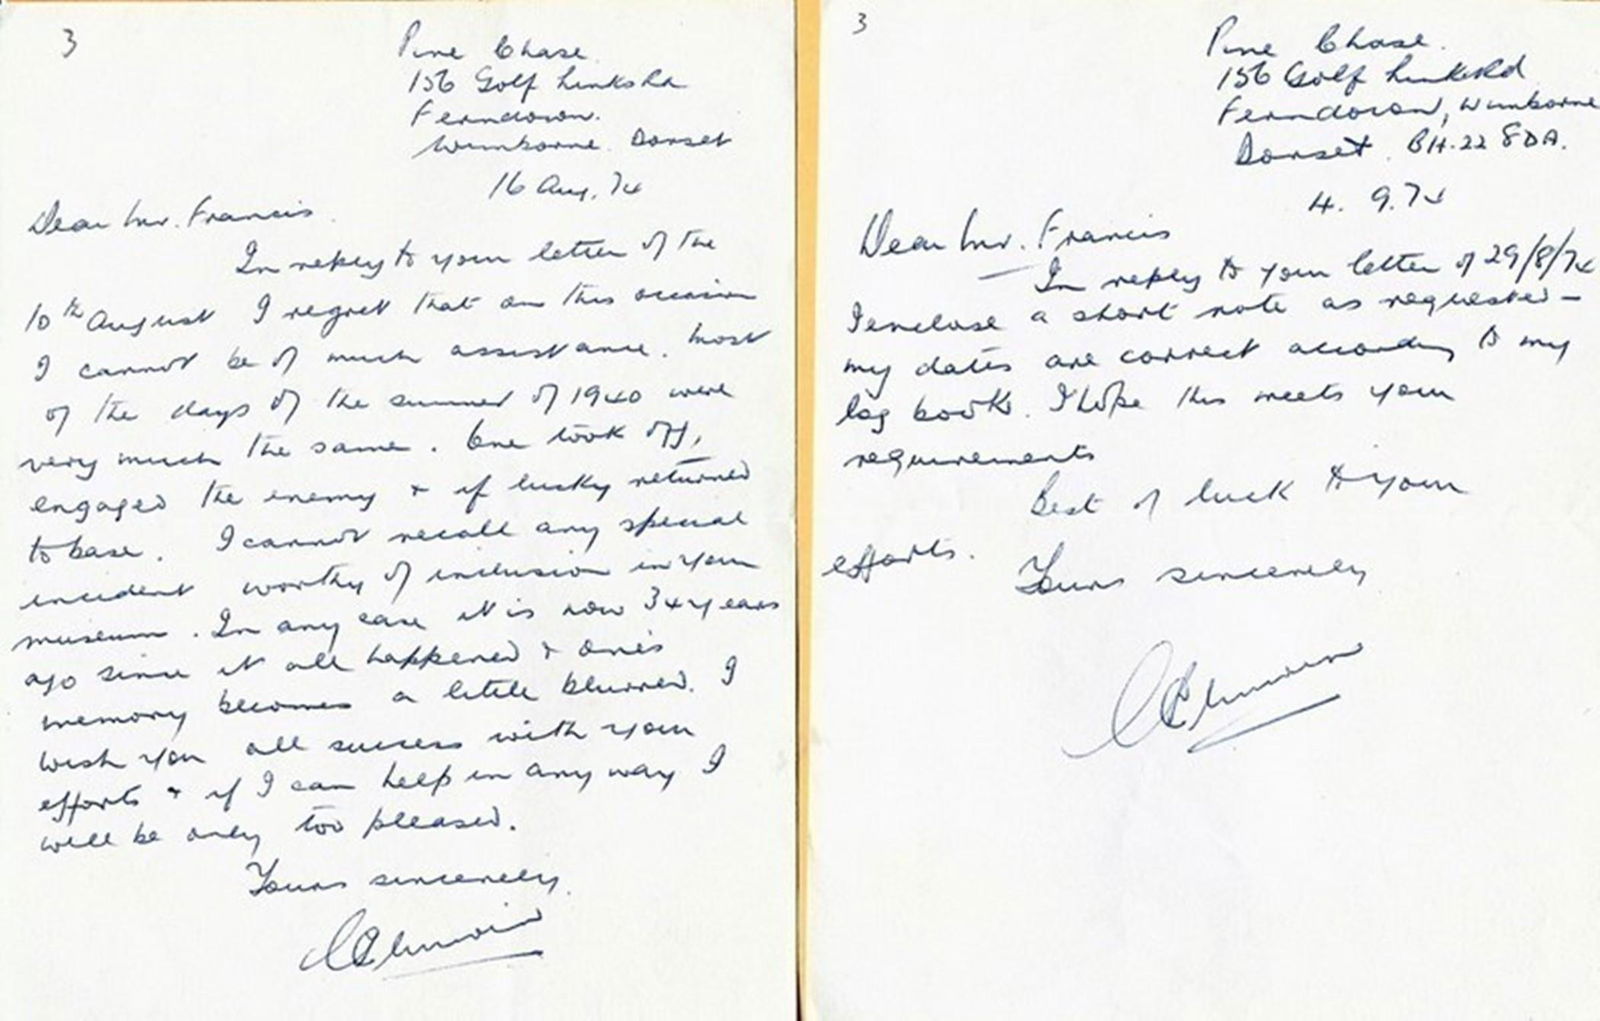 3
Pine Chase
156 Golf Links Rd
Ferndown.
Wimborne. Dorset
16 Aug. 74
Dear Mr. Francis.
In reply to your letter of the
10th August I regret that on this occasion
I cannot be of much assistance. Most
of the days of the summer of 1940 were
very much the same. One took off,
engaged the enemy & if lucky returned
to base. I cannot recall any special
incident worthy of inclusion in your
museum. In any case it is now 34 years
ago since it all happened & one's
memory becomes a little blurred. I
wish you all success with your
efforts & if I can help in any way I
will be only too pleased.
Yours sincerely.
3
Pine Chase.
156 Golf Links Rd
Ferndown, Wimborne
Dorset. BH.22 8DA.
4. 9.74
Dear Mr. Francis
In reply to your letter of 29/8/74
I enclose a short note as requested -
my dates are correct according to my
log book. I hope this meets your
requirements
Best of luck to your
efforts.
Yours sincerely